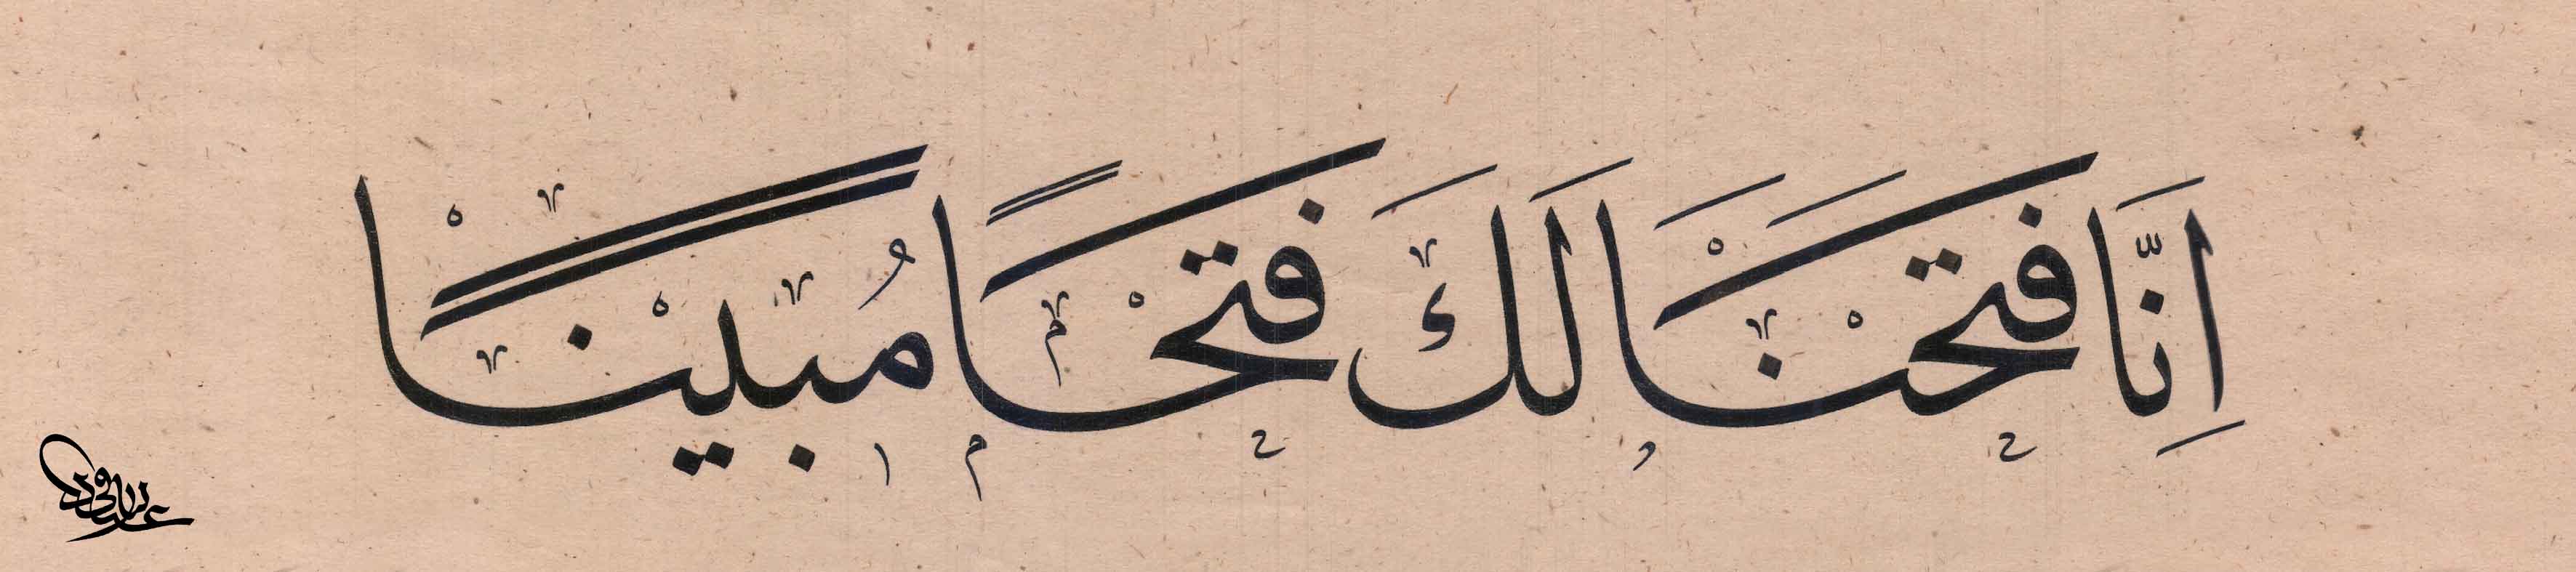 اِنَّا فَتَحْنَا لَكَ فَتْحًا مُبِيْنًا